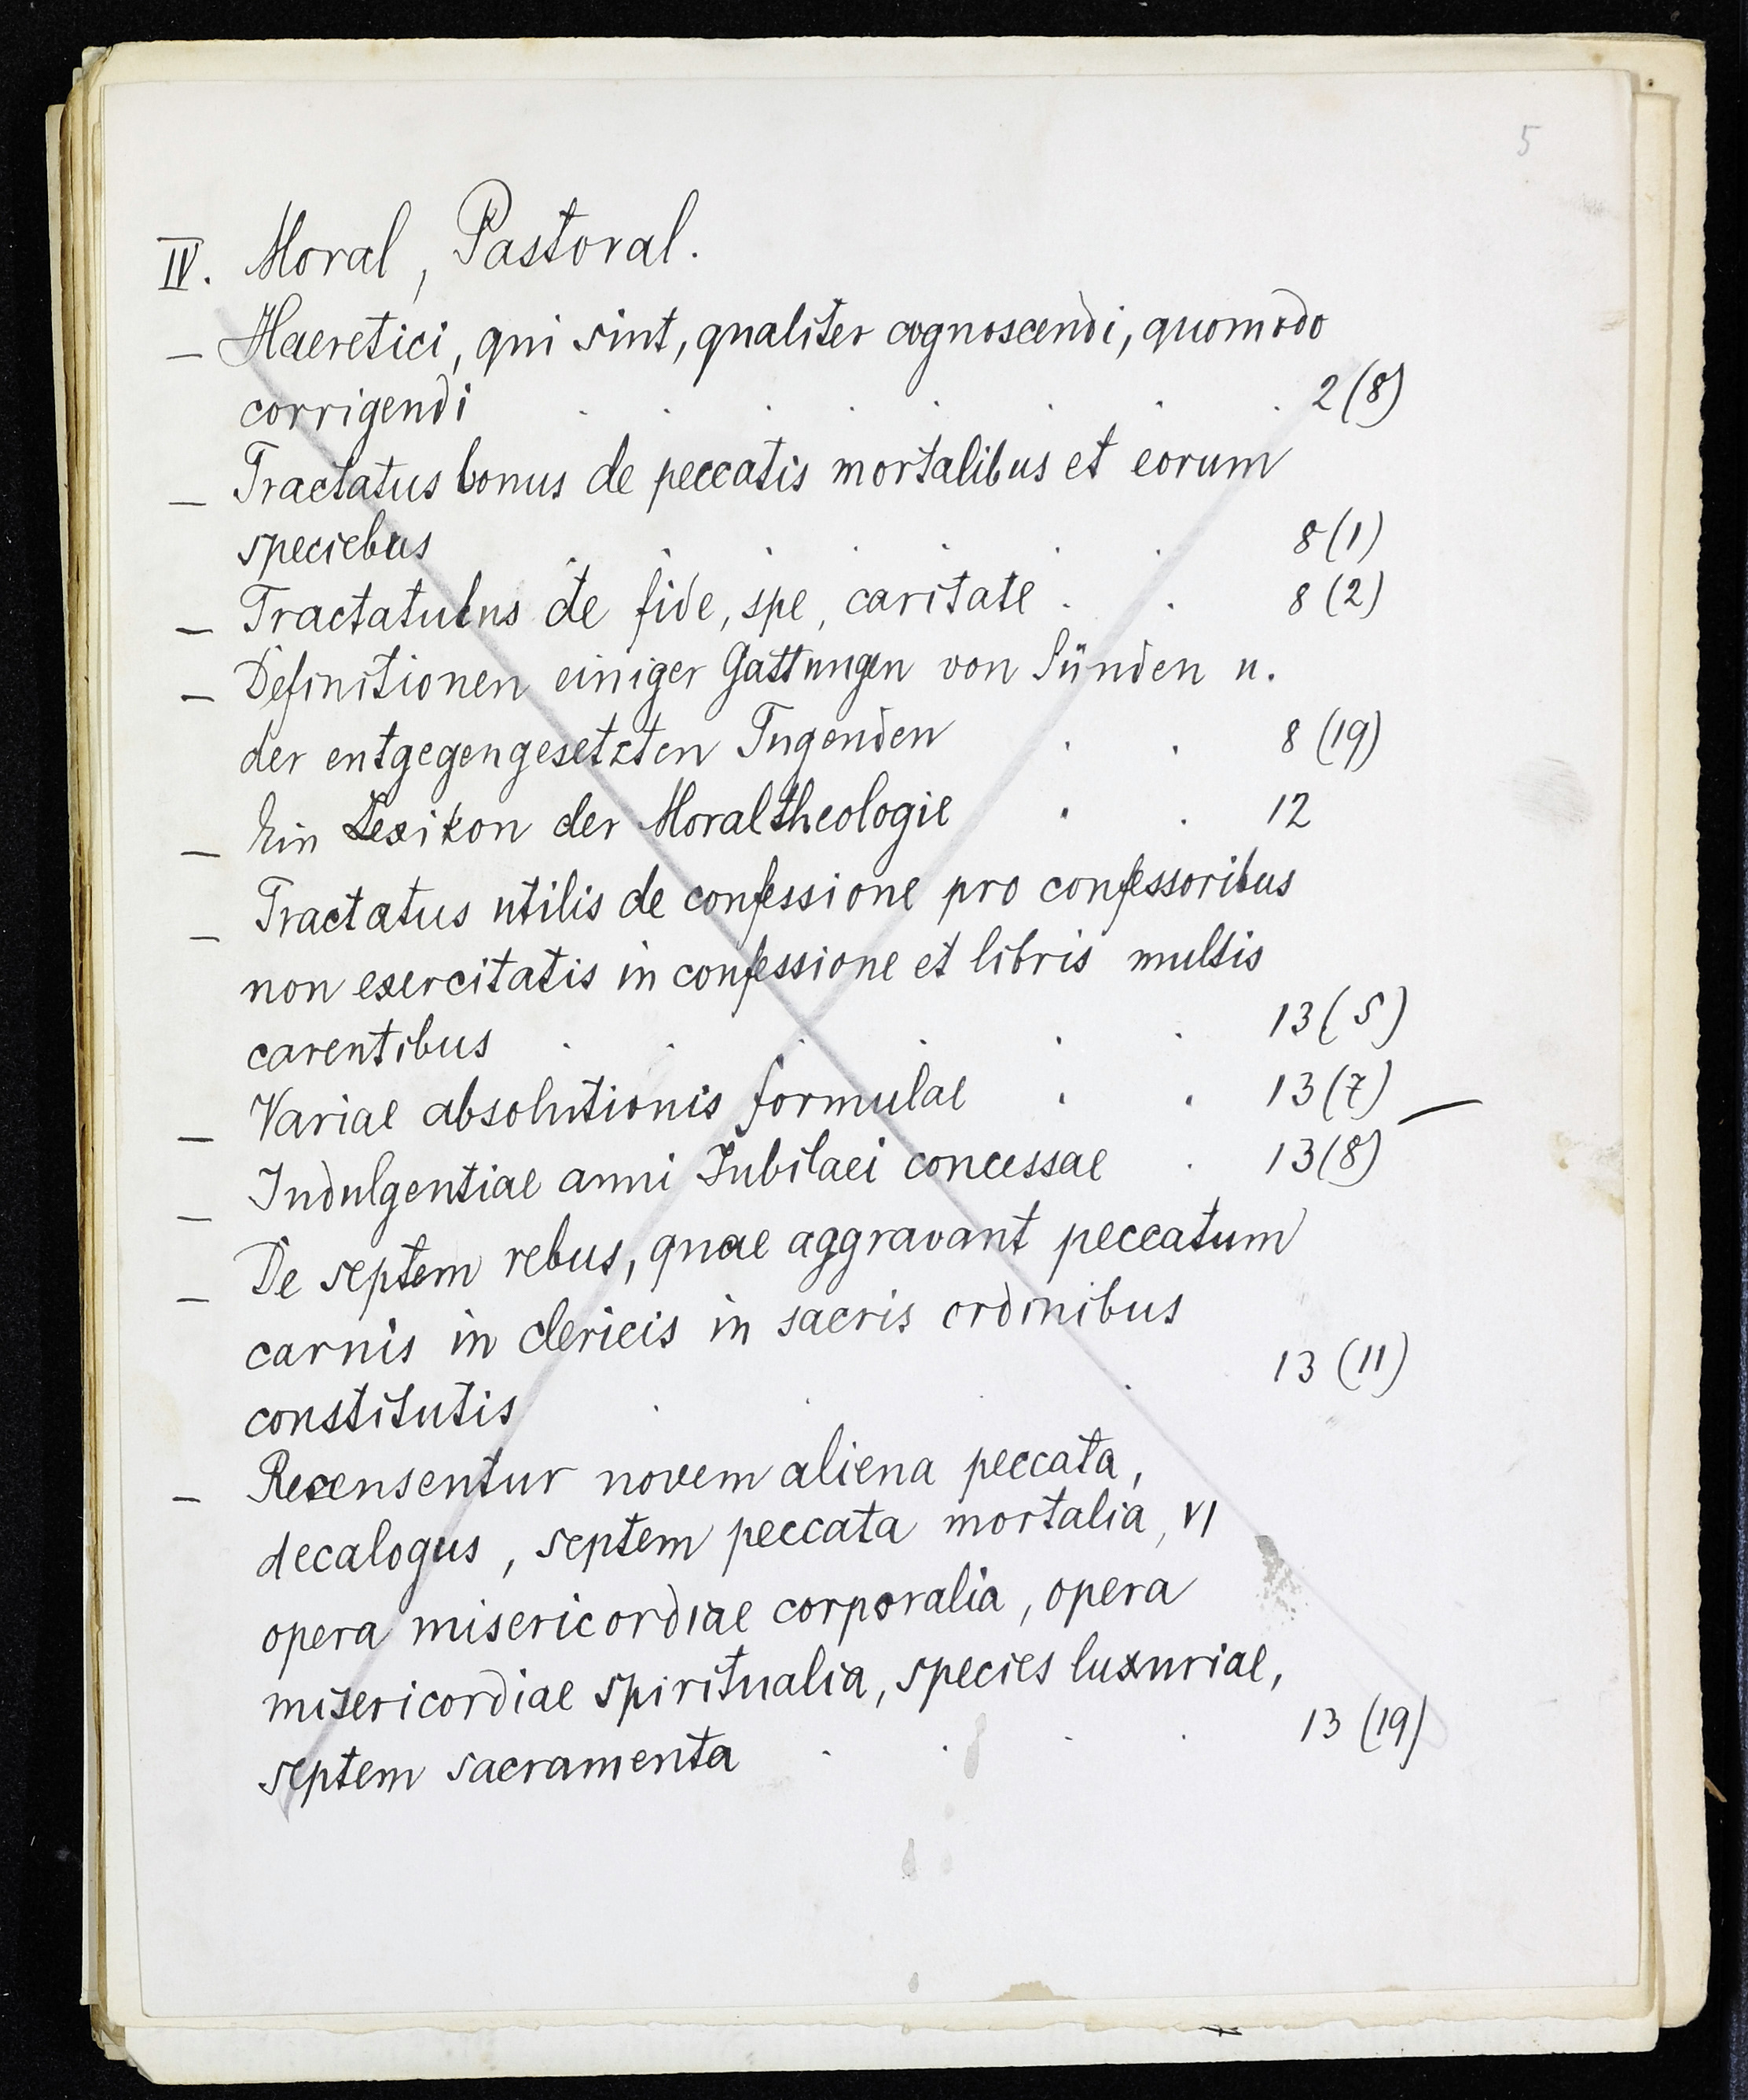 5
IV. Moral, Pastoral.
– Haeretici, qui sint, qualiter cognoscendi, quomodo
corrigendi . . . . . . . . 2 (8)
– Tractatus bonus de peccatis mortalibus et eorum
speciebus . . . . . . . 8 (1)
– Tractatulus de fide, spe, caritate . . 8 (2)
– Definitionen einiger Gattungen von Sünden u.
der entgegengesetzten Tugenden . . 8 (19)
– Ein Lexikon der Moraltheologie . . 12
– Tractatus utilis de confessione pro confessoribus
non exercitatis in confessione et libris multis
carentibus . . . . . . 13 (5)
– Variae absolutionis formulae . . 13 (7) –
– Indulgentiae anni Jubilaei concessae . 13 (8)
– De septem rebus, quae aggravant peccatum
carnis in clericis in sacris ordinibus
constitutis . . . . 13 (11)
– Recensentur novem aliena peccata,
decalogus, septem peccata mortalia, VI
opera misericordiae corporalia, opera
misericordiae spiritualia, species luxuriae,
septem sacramenta . . . . 13 (19)